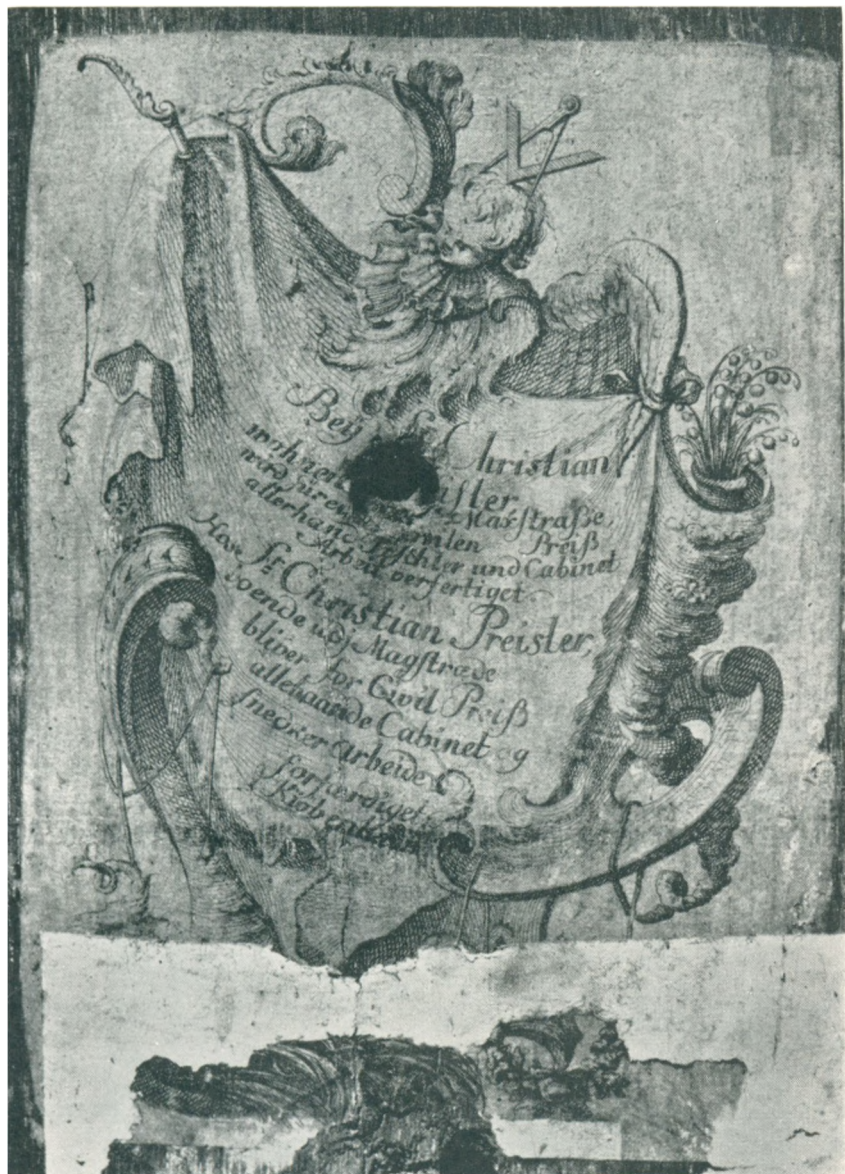 Bey Sr Christian
wohnend isler
Maxstraße,
wird für ei vilen Preiß
allerhand Tischler und Cabinet
Arbeit verfertiget
Hos Sr Christian Preisler,
boende udj Magstræde
bliver for Civil Preiß
allehaande Cabinet og
snedker arbeide
forfærdiget
Kiøbenhavn